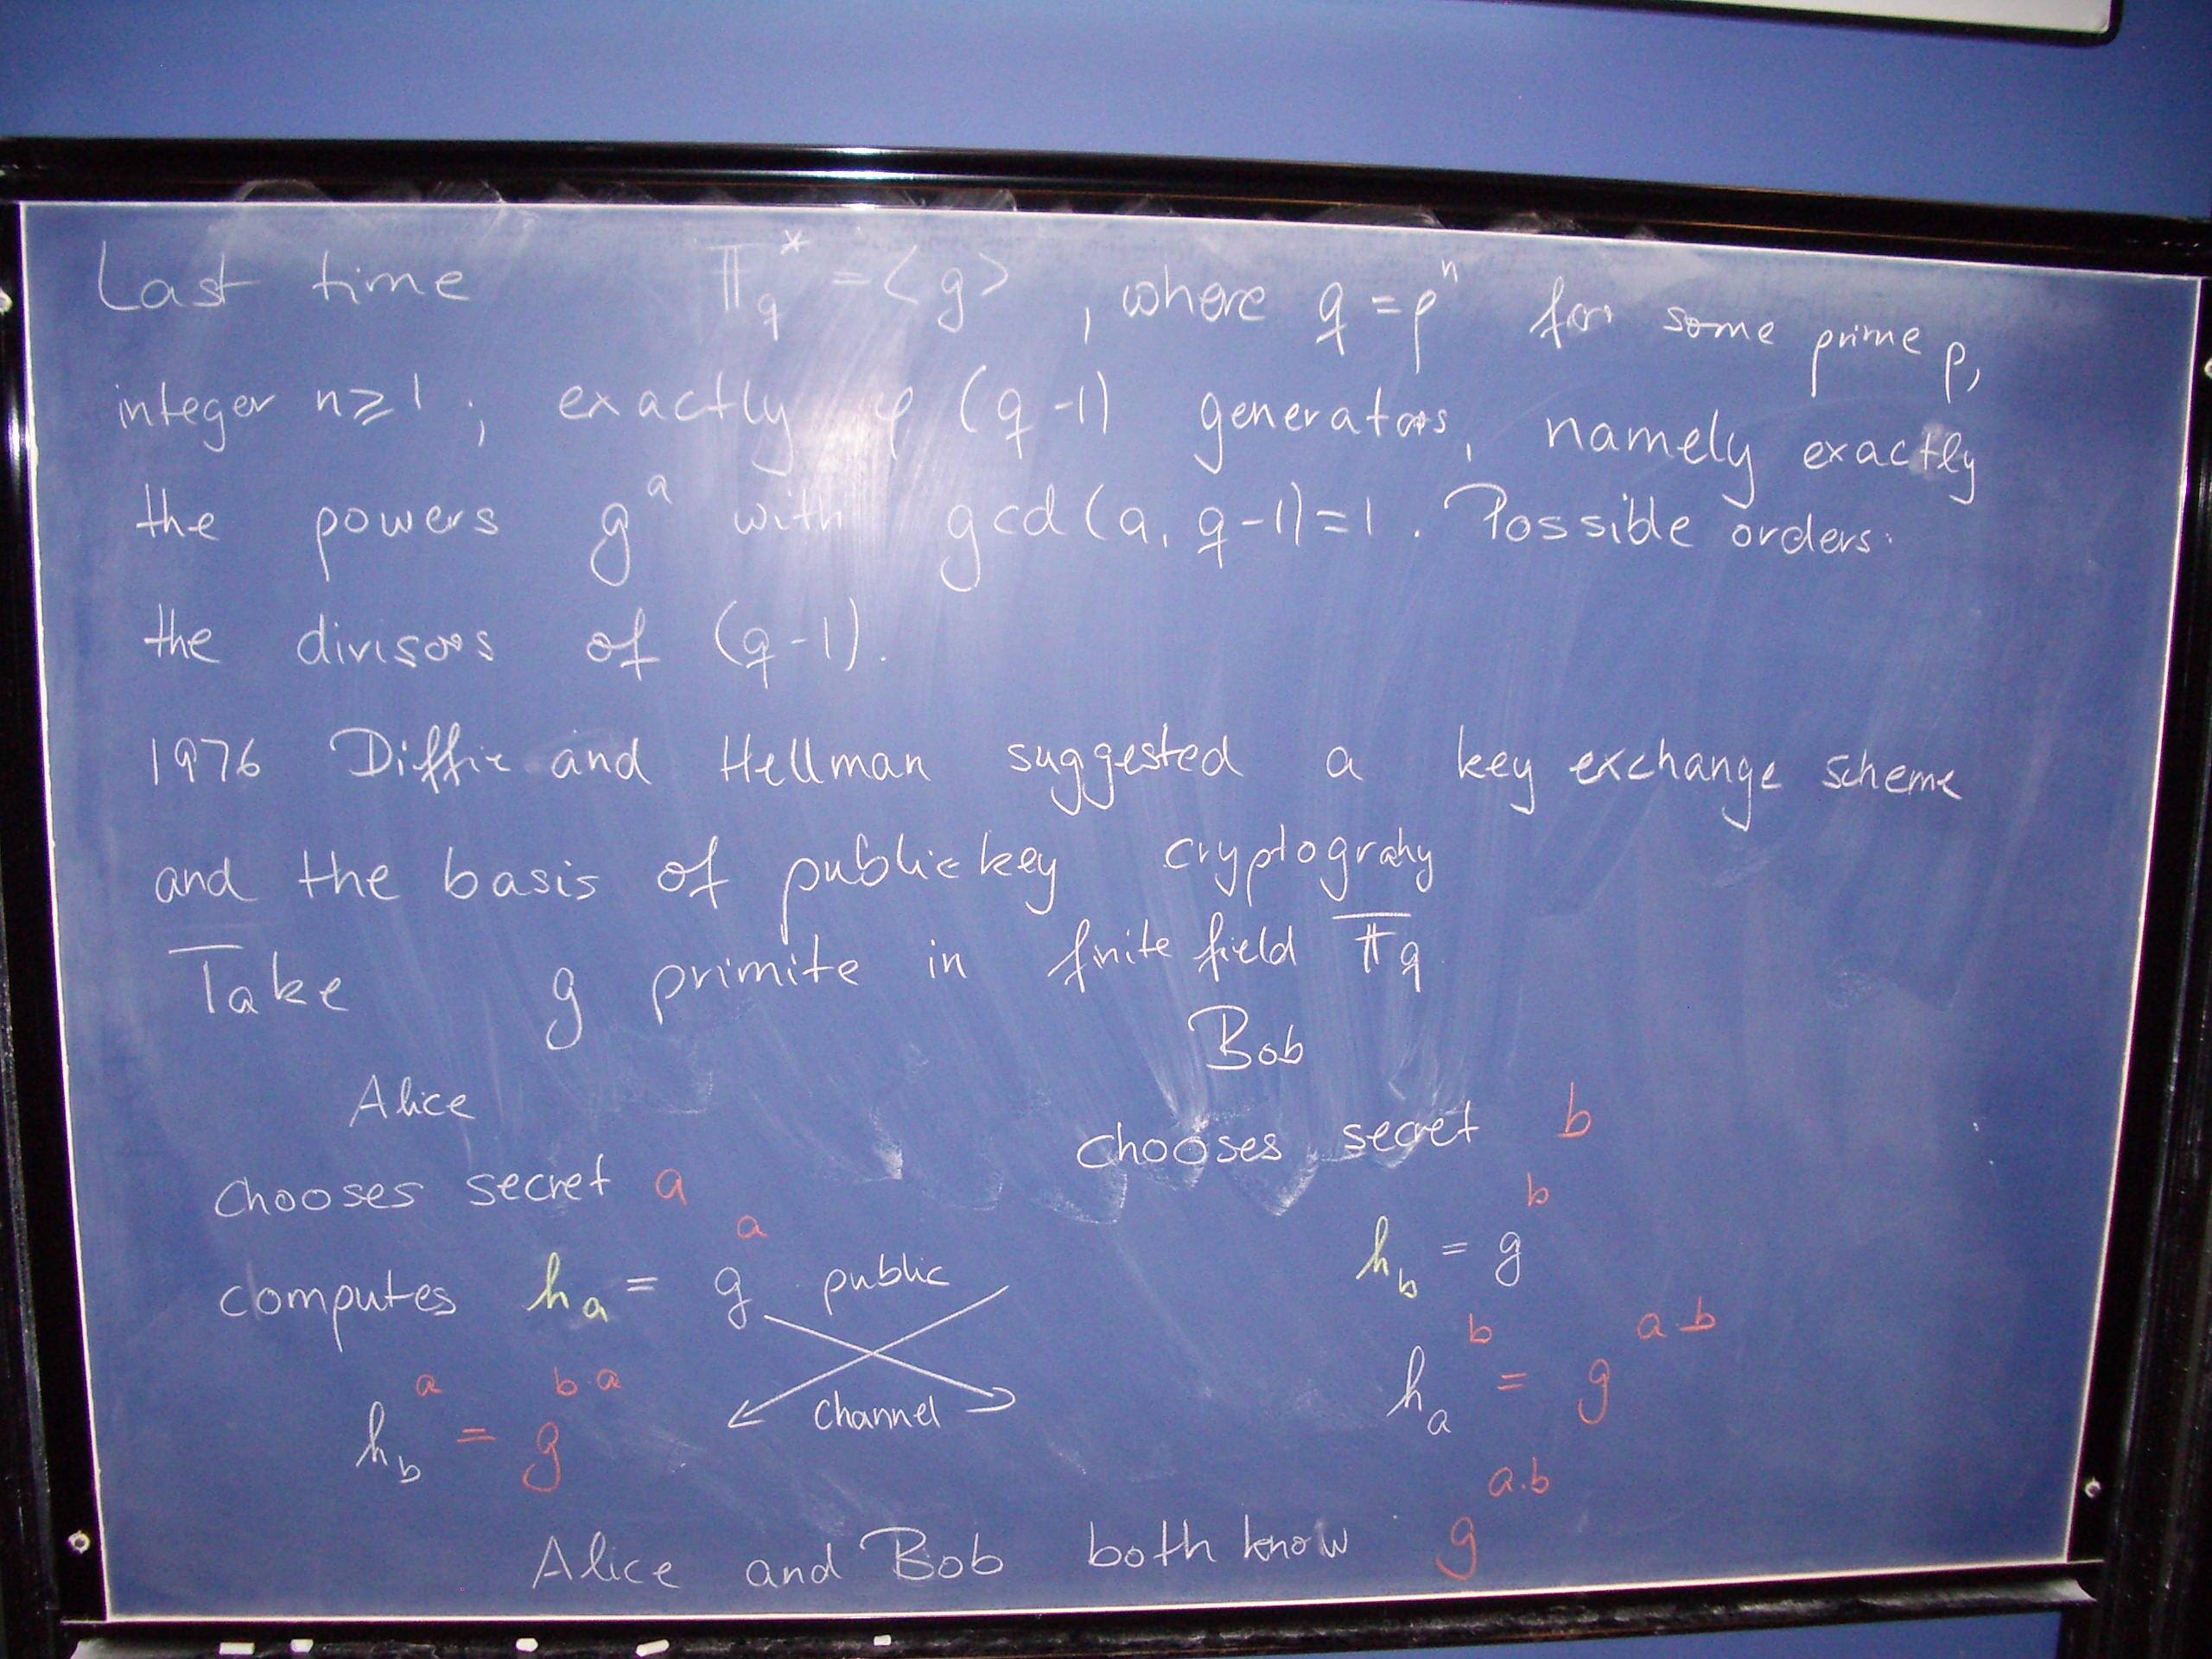 Last time 𝔽_q^* = <g>, where q = p^n for some prime p,
integer n ≥ 1 ; exactly φ(q-1) generators, namely exactly
the powers g^a with gcd(a, q-1)=1. Possible orders:
the divisors of (q-1).
1976 Diffie and Hellman suggested a key exchange scheme
and the basis of public key cryptograhy
Take g primite in finite field 𝔽_q
Alice
chooses secret a
computes h_a = g^a
h_b^a = g^{b·a}
public
channel
Bob
chooses secret b
h_b = g^b
h_a^b = g^{a·b}
Alice and Bob both know g^{a·b}